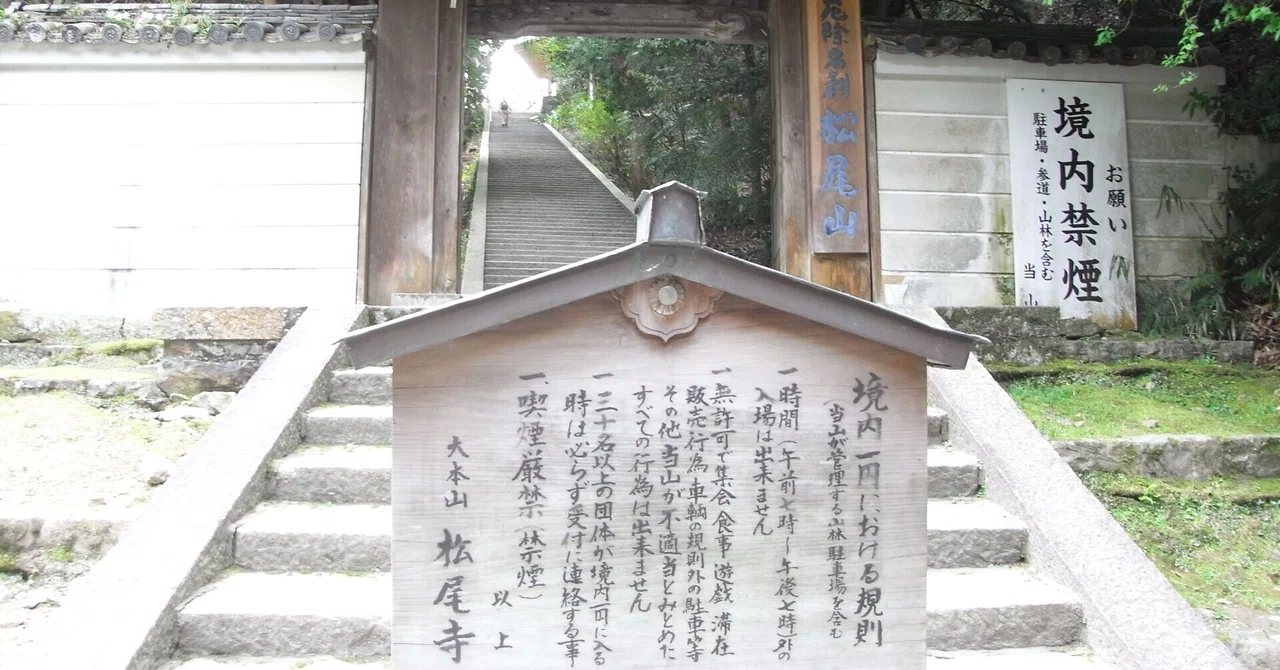 厄除名刹 松尾山
お願い
境内禁煙
駐車場・参道・山林を含む
当山
境内一円における規則
(当山が管理する山林 駐車場を含む)
一、時間(午前七時〜午後七時)外の
入場は出来ません
一、無許可で集会 食事 遊戯 滞在
販売行為 車輌の規則外の駐車等
その他当山が不適当とみとめた
すべての行為は出来ません
一、三十名以上の団体が境内一円に入る
時は必らず受付に連絡する事
一、喫煙厳禁(禁煙)
以上
大本山 松尾寺